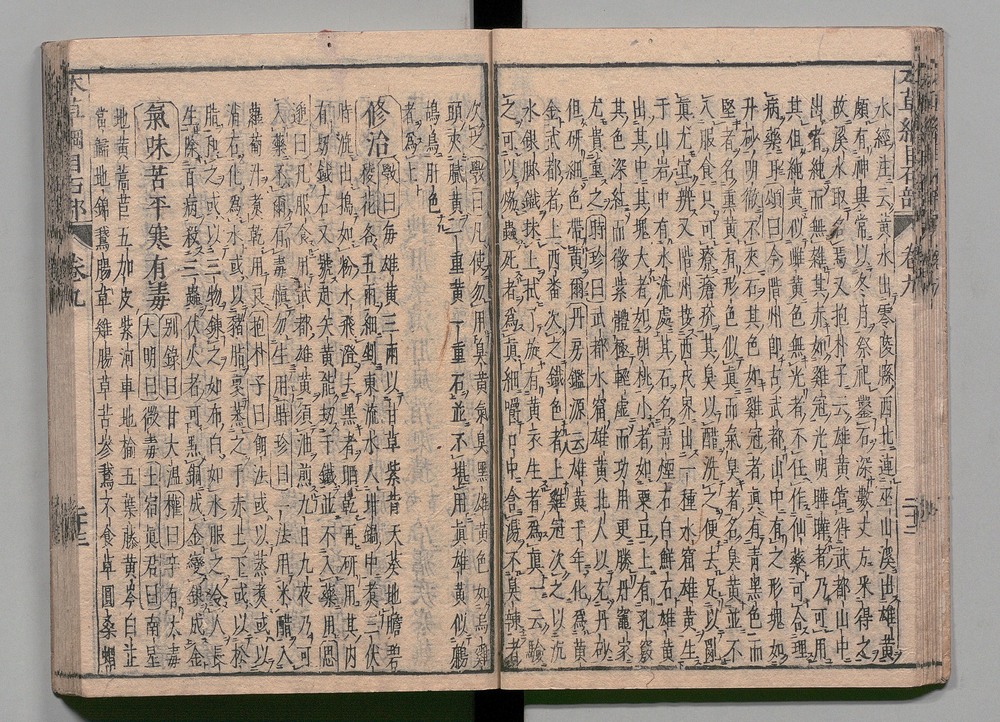 本草綱目石部 卷九 二十三
水經注云黃水出零陵縣西北連巫山溪出雄黃
頗有神異常以冬月祭祀鑿石深數丈方采得之
故溪水取名焉又抱朴子云雄黃當得武都山中
出者純而無雜其赤如雞冠光明曄曄者乃可用
其但純黃似雌黃色無光者不任作仙藥可合理
病藥耳頌曰今階州即古武都山中有之形塊如
丹砂明徹不夾石其色如雞冠者真有青黑色而
堅者名熏黃有形色似真而氣臭者名臭黃並不
入服食只可療瘡疥其臭以醋洗之便去足以亂
真尤宜辨又階州接西戎界出一種水窟雄黃生
于山岩中有水流處其石名青煙石白鮮石雄黃
出其中其塊大者如胡桃小者如粟豆上有孔竅
其色深紅而微紫體極輕虛而功用更勝丹竈家
尤貴重之時珍曰武都水窟雄黃北人以充丹砂
但研細色帶黃爾丹房鑑源云雄黃千年化為黃
金武都者上西番次之鐵色者上雞冠次之以沉
水銀腳鐵抹上拭了旋有黃衣生者為真一云驗
之可以熁蟲死者為真細嚼口中含湯不臭辣者
次之斆曰凡使勿用臭黃氣臭黑雞黃色如烏雞
頭夾膩黃一重黃一重石並不堪用真雄黃似鷓
鴣鳥肝色
者為上
修治斆曰每雄黃三兩以甘草紫背天葵地膽碧
稜花各五兩細剉東流水入坩鍋中煮三伏
時漉出搗如粉水飛澄去黑者晒乾再研用其內
有劫鐵石又號赴矢黃能劫于鐵並不入藥用思
邈曰凡服食用武都雄黃須油煎九日九夜乃可
入藥不爾有毒慎勿生用時珍曰一法用米醋入
蘿蔔汁煮乾用良抱朴子曰餌法或以蒸煮或以
消石化為水或以豬脂裹蒸之于赤土下或以松
脂和之或以三物鍊之如布白如冰服之令人長
生除百病殺三蟲伏火者可點銅成金變銀成金
氣味苦平寒有毒
別錄曰甘大溫權曰辛有大毒
大明曰微毒土宿真君曰南星
地黃萵苣五加皮紫河車地榆五葉藤黃芩白芷
當歸地錦鵝腸草雞腸草苦參鵝不食草圓桑蝟
本草綱目石部 卷九 二十三